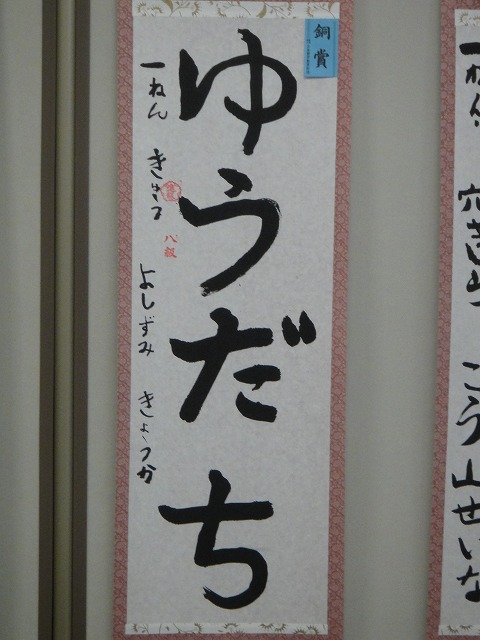 銅賞
ゆうだち
一ねん きゅう
八級
よしずみ きょうか
一ねん
こう山せいな